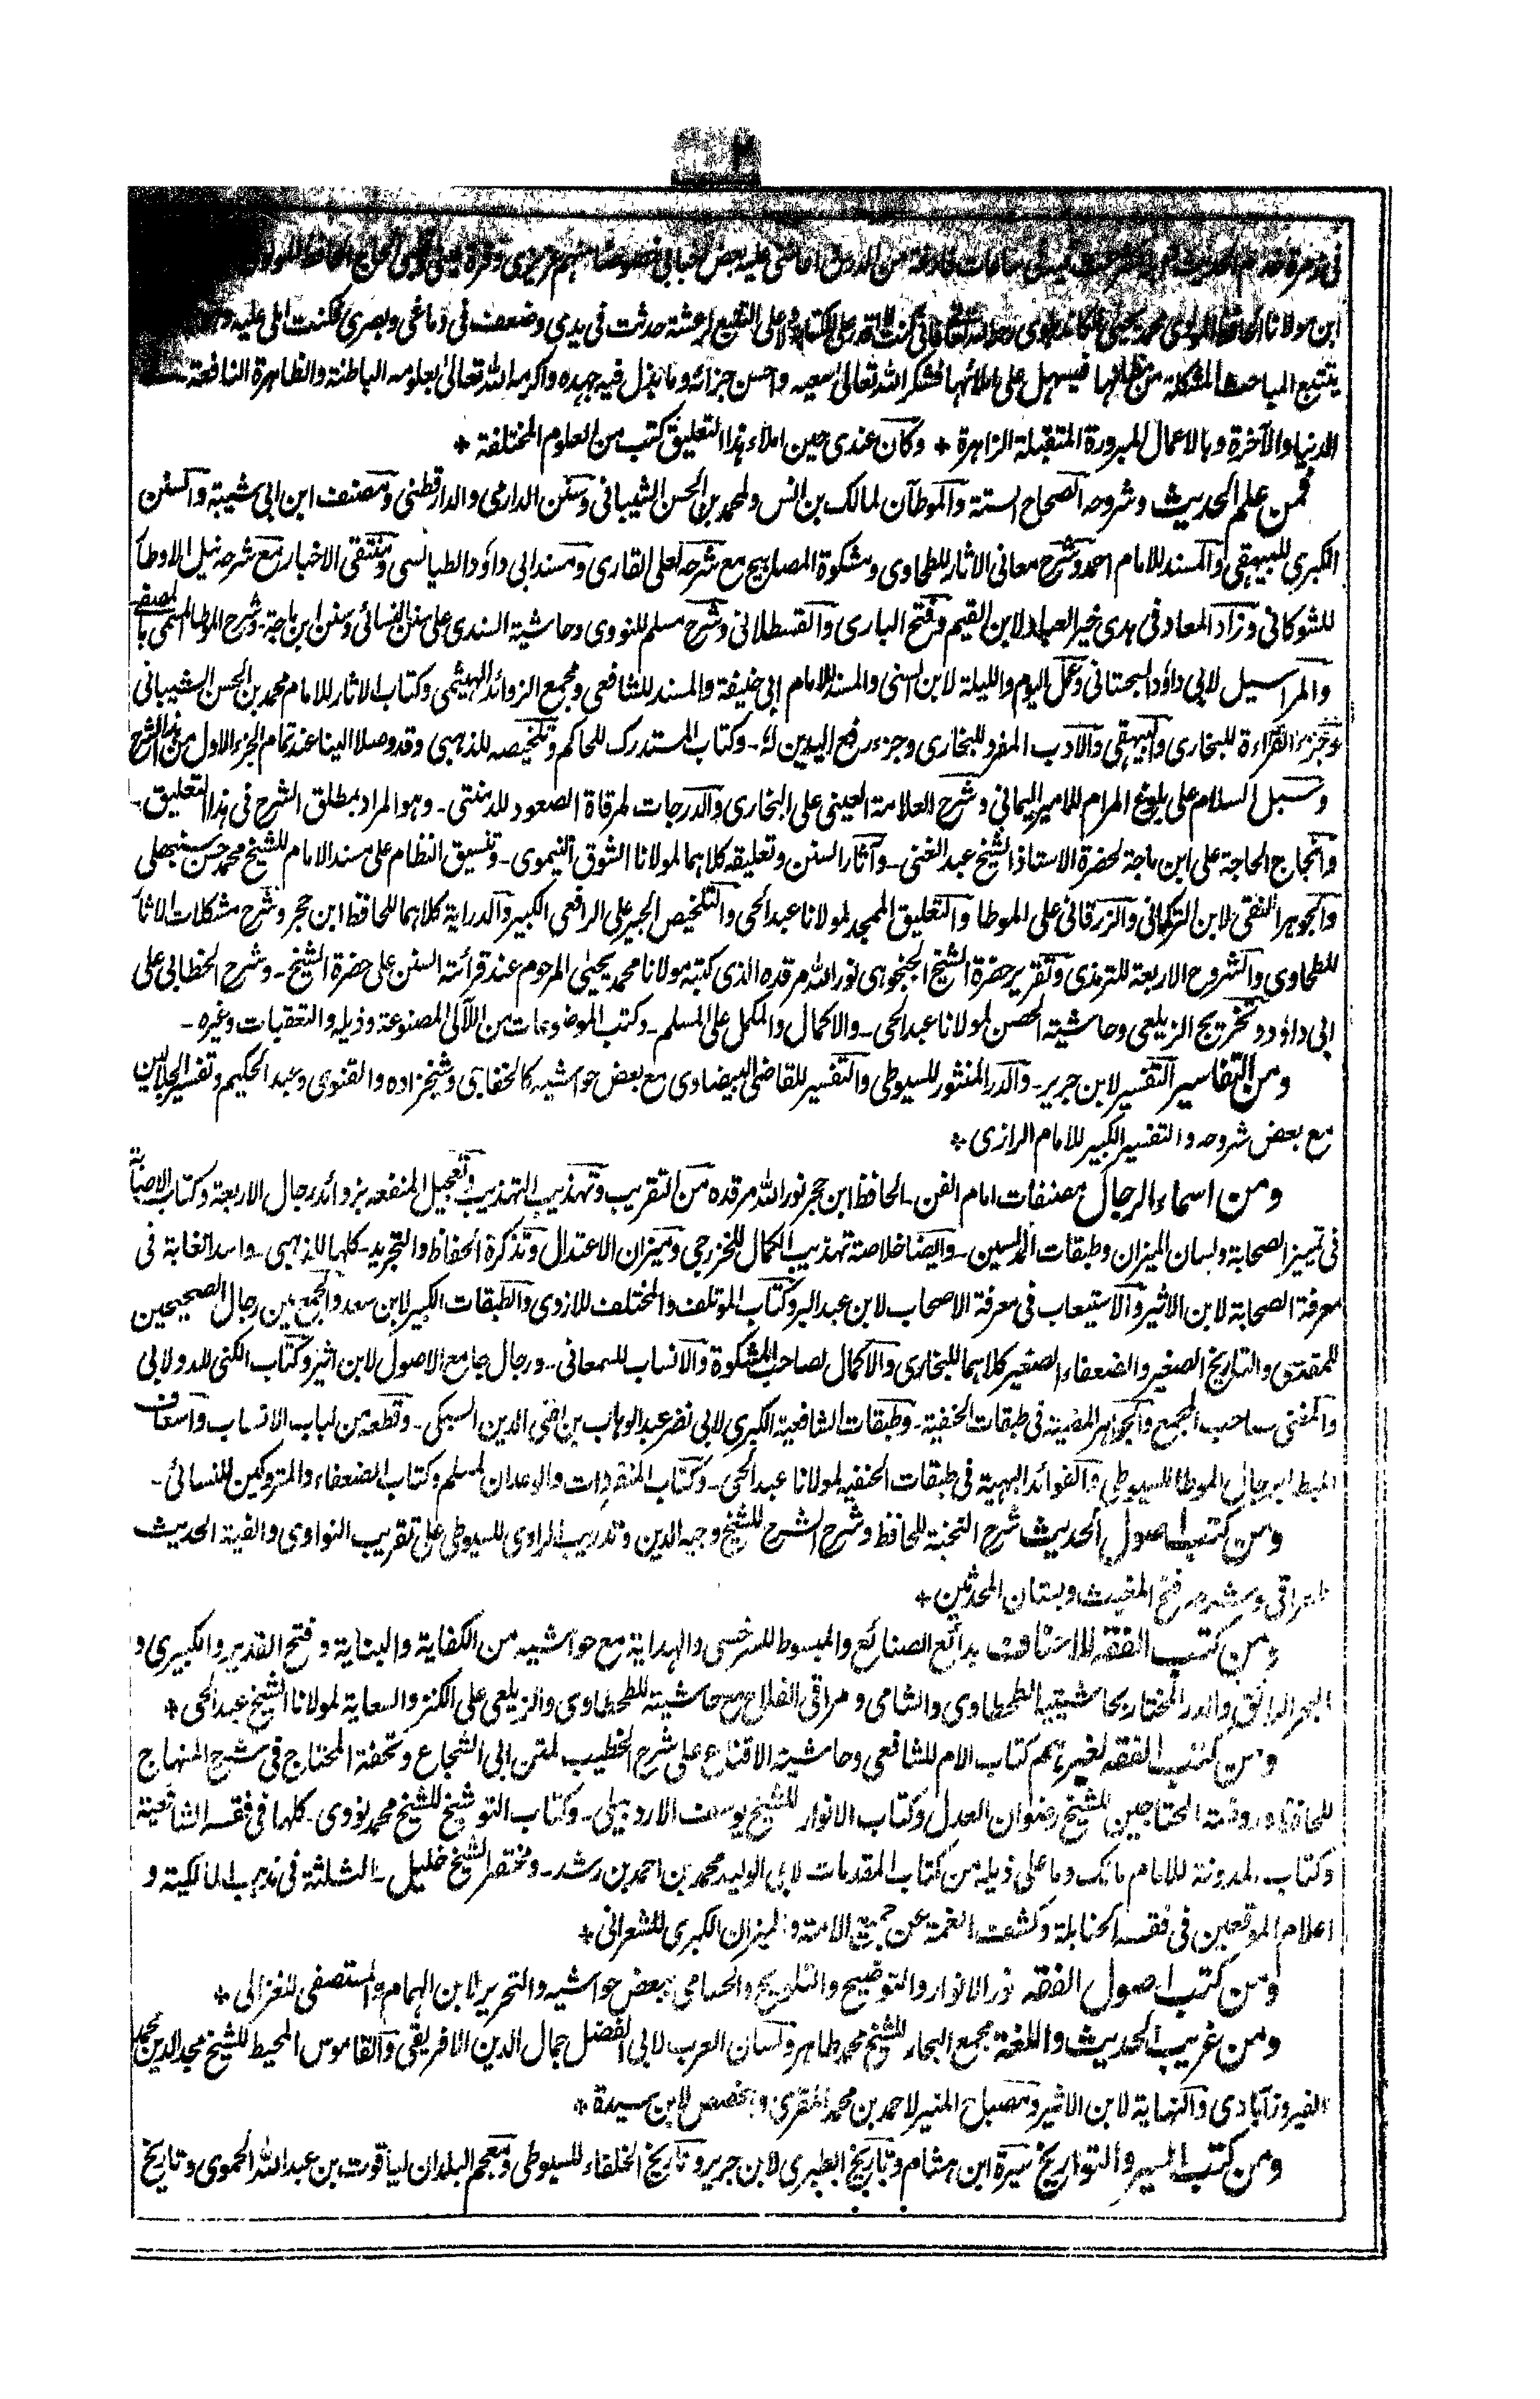 في زمرة خدم الحديث فيسرلي ساعات فارغة من الدرس اعانني عليه بعض احبابي خصوصا منهم عزيزي وقرة عيني وقلبي الحاج الحافظ المولوي
ابن مولانا الحافظ المولوي محمد يحيى الكاندهلوي رحمه الله تعالى فاني كنت لا اقدر على الكتابة ولا على التتبع لرعشة حدثت في يدي وضعف في دماغي وبصري فكنت املي عليه وهو
يتتبع المباحث المشكلة من مظانها فيسهل علي املائها فشكر الله تعالى سعيه واحسن جزائه وما بذل فيه جهده واكرمه الله تعالى بعلومه الباطنة والظاهرة النافعة
الدنيا والآخرة وبالاعمال المبرورة المتقبلة الزاهرة * وكان عندي حين املاء هذا التعليق كتب من العلوم المختلفة *
فمن علم الحديث وشروحه الصحاح الستة والموطآن لمالك بن انس ولمحمد بن الحسن الشيباني وسنن الدارمي والدارقطني ومصنف ابن ابي شيبة والسنن
الكبرى للبيهقي والمسند للامام احمد وشرح معاني الاثار للطحاوي ومشكوة المصابيح مع شرحه لعلي القاري ومسند ابي داؤد الطيالسي ومنتقى الاخبار مع شرحه نيل الاوطا
للشوكاني وزاد المعاد في هدى خير العباد لابن القيم وفتح الباري والقسطلاني وشرح مسلم للنووي وحاشية السندي على سنن النسائي وسنن ابن ماجة وشرح الموطا المسمى بالمصفى
والمراسيل لابي داؤد السجستاني وعمل اليوم والليلة لابن السني والمسند للامام ابي حنيفة والمسند للشافعي ومجمع الزوائد للهيثمي وكتاب الاثار للامام محمد بن الحسن الشيباني
وجزء القراءة للبخاري والبيهقي والادب المفرد للبخاري وجزء رفع اليدين له - وكتاب المستدرك للحاكم وتلخيصه للذهبي وقد وصلا الينا عند تمام الجزء الاول من هذا الشرح
وسبل السلام على بلوغ المرام للامير اليماني وشرح العلامة العيني على البخاري والدرجات لمرقاة الصعود للدمنتي - وهو المراد بمطلق الشرح في هذا التعليق -
وانجاح الحاجة على ابن ماجة لحضرة الاستاذ الشيخ عبد الغني - وآثار السنن وتعليقه كلاهما لمولانا الشوق النيموي - وتنسيق النظام على مسند الامام للشيخ محمد حسن سنبهلي
والجوهر النقي لابن التركماني والزرقاني على الموطا والتعليق الممجد لمولانا عبد الحي والتلخيص الحبير على الرافعي الكبير والدراية كلاهما للحافظ ابن حجر وشرح مشكلات الاثا
للطحاوي والشروح الاربعة للترمذي وتقرير حضرة الشيخ الجنجوهي نور الله مرقده الذي كتبه مولانا محمد يحيى المرحوم عند قرائته السنن على حضرة الشيخ - وشرح الخطابي على
ابي داؤد وتخريج الزيلعي وحاشية الحصن لمولانا عبد الحي - والاكمال والمكمل على المسلم - وكتب الموضوعات من اللآلي المصنوعة وذيله والتعقبات وغيره -
ومن التفاسير التفسير لابن جرير - والدر المنثور للسيوطي والتفسير للقاضي البيضاوي مع بعض حواشيه كالخفاجي وشيخزاده والقنوي وعبد الحكيم وتفسير الجلالين
مع بعض شروحه والتفسير الكبير للامام الرازي *
ومن اسماء الرجال مصنفات امام الفن - الحافظ ابن حجر نور الله مرقده من التقريب وتهذيب التهذيب وتعجيل المنفعه بزوائد رجال الاربعة وكتاب الاصابة
في تمييز الصحابة ولسان الميزان وطبقات المدلسين - وايضا خلاصة تهذيب الكمال للخزرجي وميزان الاعتدال وتذكرة الحفاظ والتجريد - كلها للذهبي - واسد الغابة في
معرفة الصحابة لابن الاثير والاستيعاب في معرفة الاصحاب لابن عبد البر وكتاب الموتلف والمختلف للازدي والطبقات الكبير لابن سعد والجمع بين رجال الصحيحين
للمقدسي والتاريخ الصغير والضعفاء الصغير كلاهما للبخاري والاكمال لصاحب المشكوة والانساب للسمعاني - ورجال جامع الاصول لابن اثير وكتاب الكنى للدولابي
والمغني صاحب المجمع والجواهر المضية في طبقات الحنفية - وطبقات الشافعية الكبرى لابي نصر عبد الوهاب بن تقي الدين السبكي - وقطعه من لباب الانساب واسعاف
المبطا برجال الموطا للسيوطي والفوائد البهية في طبقات الحنفيه لمولانا عبد الحي - وكتاب المنفردات والوحدان لمسلم وكتاب الضعفاء والمتروكين للنسائي -
ومن كتب اصول الحديث شرح النخبة للحافظ وشرح الشرح للشيخ وجيه الدين وتدريب الراوي للسيوطي على تقريب النواوي والفية الحديث
للعراقي وشرحه فتح المغيث وبستان المحدثين *
ومن كتب الفقه للاحناف بدائع الصنائع والمبسوط للسرخسي والهداية مع حواشيه من الكفاية والبناية وفتح القدير والكبيري و
البحر الرائق والدر المختار بحاشيتيه الطحطاوي والشامي ومراقي الفلاح مع حاشيته للطحطاوي والزيلعي على الكنز والسعاية لمولانا الشيخ عبد الحي *
ومن كتب الفقه لغيرهم كتاب الام للشافعي وحاشية الاقناع على شرح الخطيب لمتن ابي الشجاع وتحفة المحتاج في شرح المنهاج
للحافظ وروضة المحتاجين للشيخ رضوان العدل وكتاب الانوار للشيخ يوسف الاردبيلي - وكتاب التوشيخ للشيخ محمد نووي - كلها في فقه الشافعية
وكتاب المدونة للامام مالك وما على ذيله من كتاب المقدمات لابي الوليد محمد بن احمد بن رشد - ومختصر الشيخ خليل - الثلثة في مذهب المالكية و
اعلام الموقعين في فقه الحنابلة وكشف الغمة عن جميع الامة والميزان الكبرى للشعراني *
ومن كتب اصول الفقه نور الانوار والتوضيح والتلويح والحسامي ببعض حواشيه والتحرير لابن الهمام والمستصفى للغزالي *
ومن غريب الحديث واللغة مجمع البحار للشيخ محمد طاهر ولسان العرب لابي الفضل جمال الدين الافريقي والقاموس المحيط للشيخ مجد الدين محمد
الفيروزآبادي والنهاية لابن الاثير ومصباح المنير لاحمد بن محمد المقري والمخصص لابن سيدة *
ومن كتب السير والتواريخ سيرة ابن هشام وتاريخ الطبري لابن جرير وتاريخ الخلفاء للسيوطي ومعجم البلدان لياقوت بن عبد الله الحموي وتاريخ